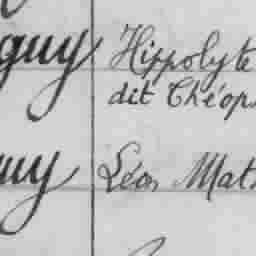 guy Hippolyte
dit Théop
uy Léon Mat